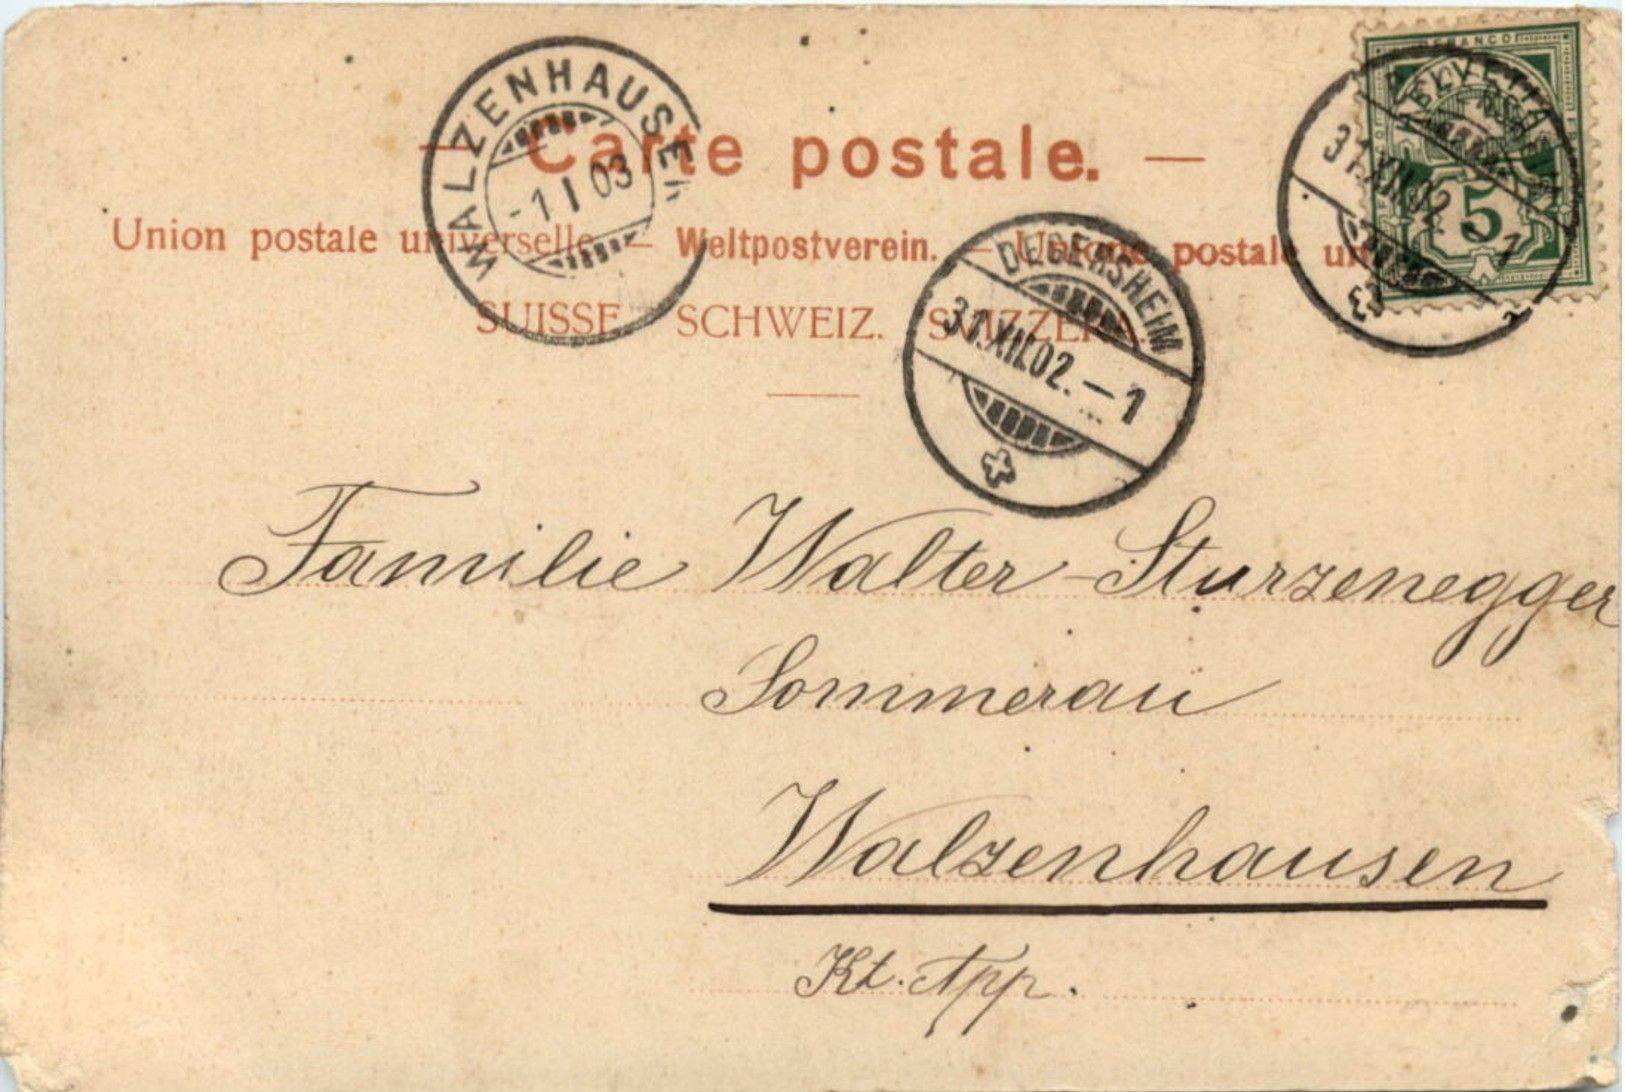 Carte postale.
Union postale universelle. — Weltpostverein. — Unione postale
SUISSE. SCHWEIZ. SVIZZERA.
WALZENHAUSEN
-1 I 03
DEGERSHEIM
31.XII.02.–1
FRANCO
HELVETIA
5
31.XII.02.–1
Familie Walter-Sturzenegger
Sommerau
Walzenhausen
Kt. App.